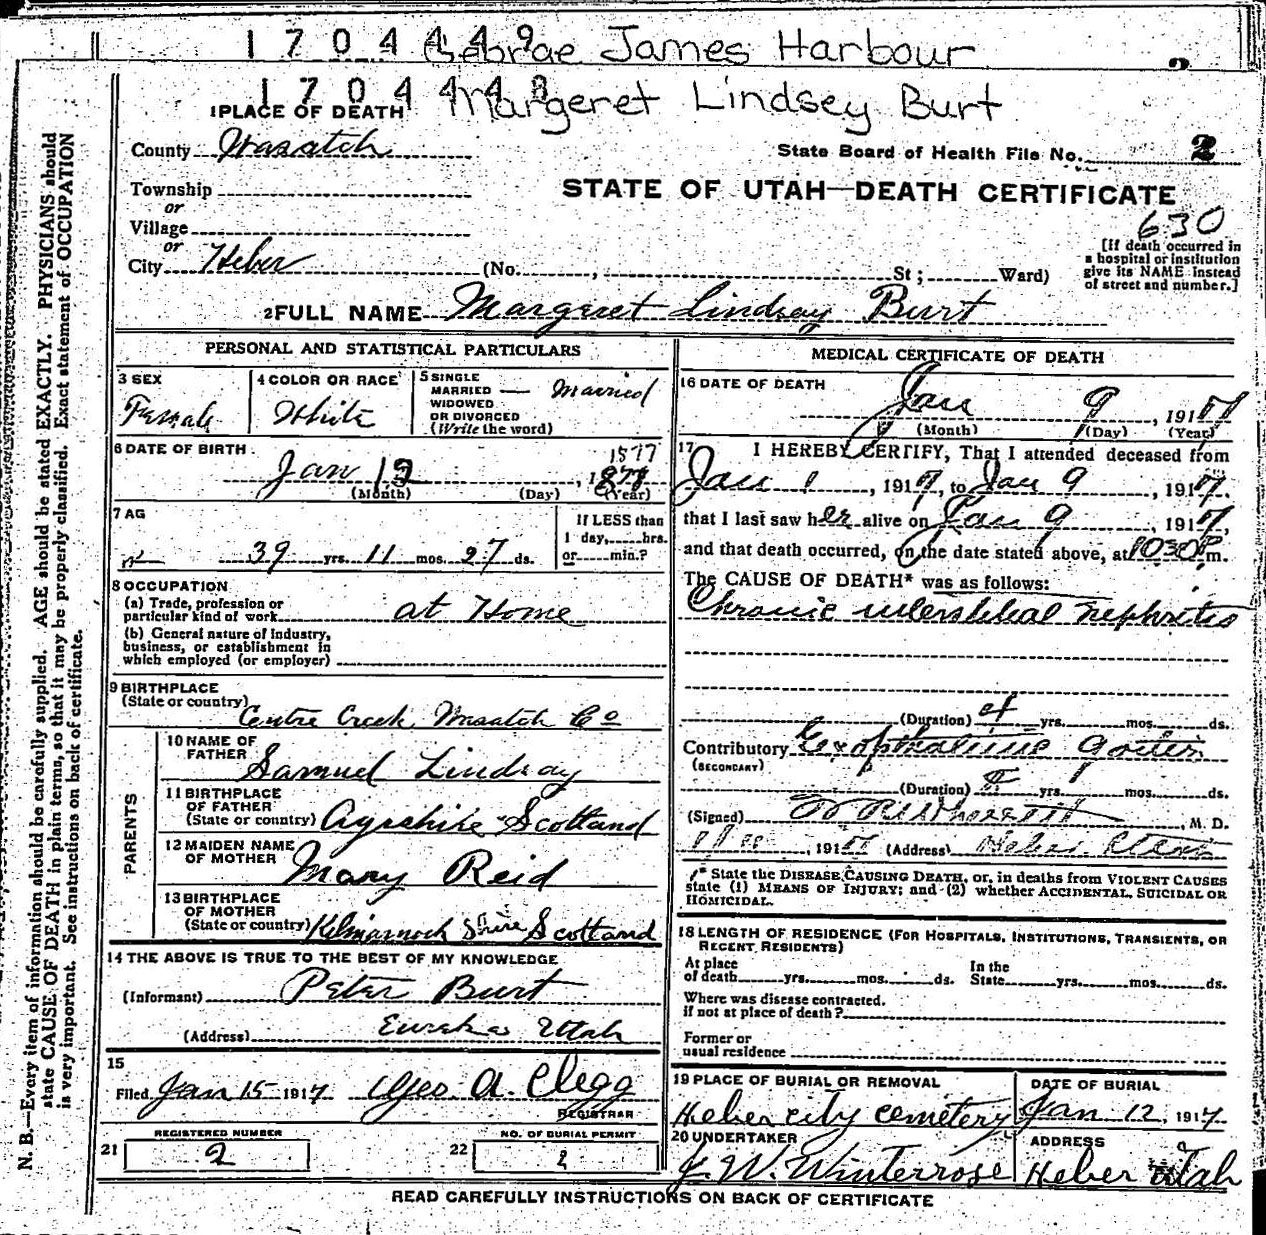 1704449 George James Harbour
2
1704448 Margeret Lindsey Burt
1 PLACE OF DEATH
County Wasatch
State Board of Health File No. 2
Township
STATE OF UTAH—DEATH CERTIFICATE
or
Village
630
or
City Heber (No. , St; Ward)
[If death occurred in
a hospital or institution
give its NAME instead
of street and number.]
2 FULL NAME Margaret Lindsay Burt
PERSONAL AND STATISTICAL PARTICULARS
3 SEX
Female
4 COLOR OR RACE
White
5 SINGLE
MARRIED — Married
WIDOWED
OR DIVORCED
(Write the word)
6 DATE OF BIRTH
1877
Jan 12, 187
(Month) (Day) (Year)
7 AG
39 yrs. 11 mos. 27 ds.
If LESS than
1 day, hrs.
or min.?
8 OCCUPATION
(a) Trade, profession or
particular kind of work at Home
(b) General nature of industry,
business, or establishment in
which employed (or employer)
9 BIRTHPLACE
(State or country) Centre Creek Wasatch Co
PARENTS
10 NAME OF
FATHER Samuel Lindsay
11 BIRTHPLACE
OF FATHER
(State or country) Ayrshire Scotland
12 MAIDEN NAME
OF MOTHER Mary Reid
13 BIRTHPLACE
OF MOTHER
(State or country) Kilmarnock Shire Scotland
14 THE ABOVE IS TRUE TO THE BEST OF MY KNOWLEDGE
(Informant) Peter Burt
(Address) Eureka Utah
15
Filed Jan 15 1917 Geo. A. Clegg
REGISTRAR
REGISTERED NUMBER
21 2
NO. OF BURIAL PERMIT
22 2
MEDICAL CERTIFICATE OF DEATH
16 DATE OF DEATH
Jan 9, 1917
(Month) (Day) (Year)
17 I HEREBY CERTIFY, That I attended deceased from
Jan 1, 1917, to Jan 9, 1917,
that I last saw her alive on Jan 9, 1917,
and that death occurred, on the date stated above, at 1030 P m.
The CAUSE OF DEATH* was as follows:
Chronic interstitial nephritis
(Duration) yrs. mos. ds.
Contributory Exopthalmic goiter
(SECONDARY)
(Duration) yrs. mos. ds.
(Signed) , M. D.
, 191 (Address) Heber
* State the DISEASE CAUSING DEATH, or, in deaths from VIOLENT CAUSES
state (1) MEANS OF INJURY; and (2) whether ACCIDENTAL, SUICIDAL OR
HOMICIDAL.
18 LENGTH OF RESIDENCE (FOR HOSPITALS, INSTITUTIONS, TRANSIENTS, OR
RECENT RESIDENTS)
At place
of death yrs. mos. ds.
In the
State yrs. mos. ds.
Where was disease contracted.
if not at place of death?
Former or
usual residence
19 PLACE OF BURIAL OR REMOVAL
Heber city cemetery
DATE OF BURIAL
Jan 12, 1917
20 UNDERTAKER
J. W. Winterrose
ADDRESS
Heber Utah
READ CAREFULLY INSTRUCTIONS ON BACK OF CERTIFICATE
N. B.—Every item of information should be carefully supplied. AGE should be stated EXACTLY. PHYSICIANS should
state CAUSE OF DEATH in plain terms, so that it may be properly classified. Exact statement of OCCUPATION
is very important. See instructions on back of certificate.